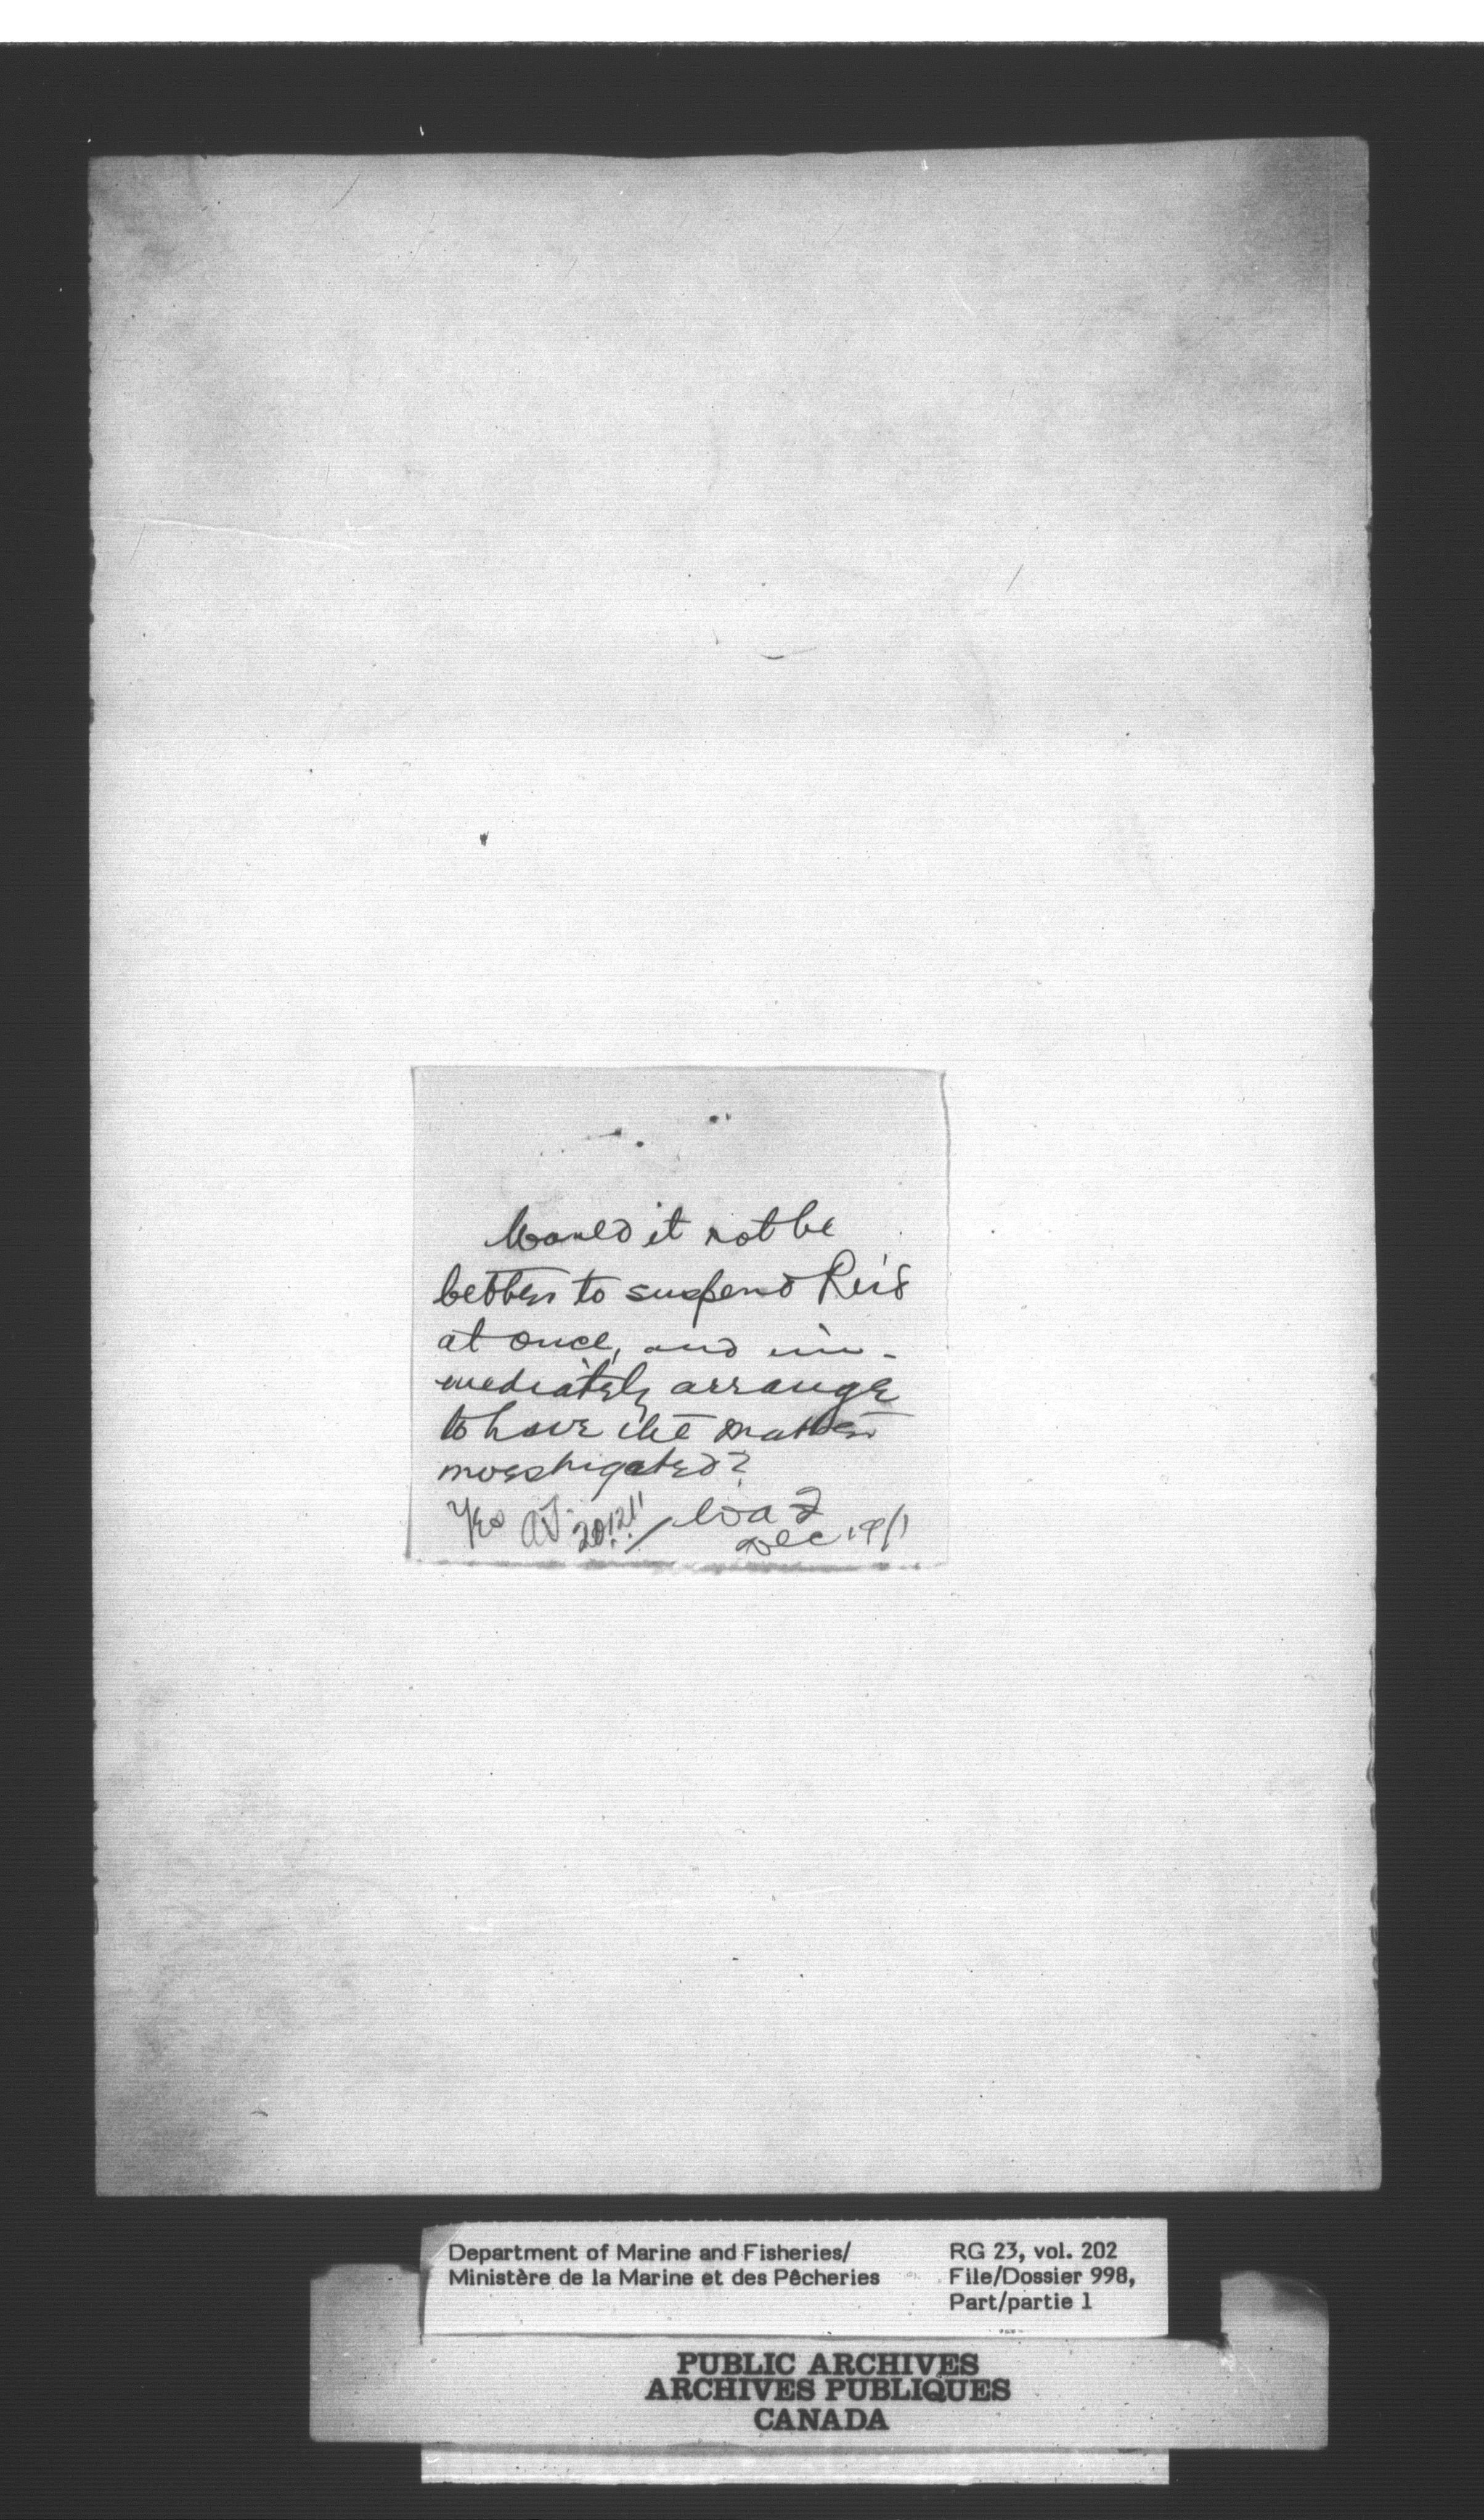 Would it not be
better to suspend Reid
at once, and im-
mediately arrange
to have the matter
investigated?
Yes AJ. 20/12/11 / W a F
Dec 19/11
Department of Marine and Fisheries/
Ministère de la Marine et des Pêcheries
RG 23, vol. 202
File/Dossier 998,
Part/partie 1
PUBLIC ARCHIVES
ARCHIVES PUBLIQUES
CANADA